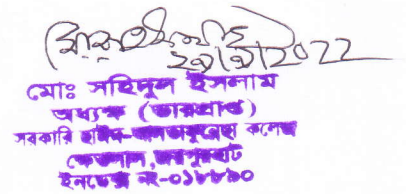 ২৯/৯/2022
মোঃ সহিদুল ইসলাম
অধ্যক্ষ (ভারপ্রাপ্ত)
সরকারি কলেজ
ক্ষেতলাল, জয়পুরহাট
ইনডেক্স নং-০১৮৮৯০